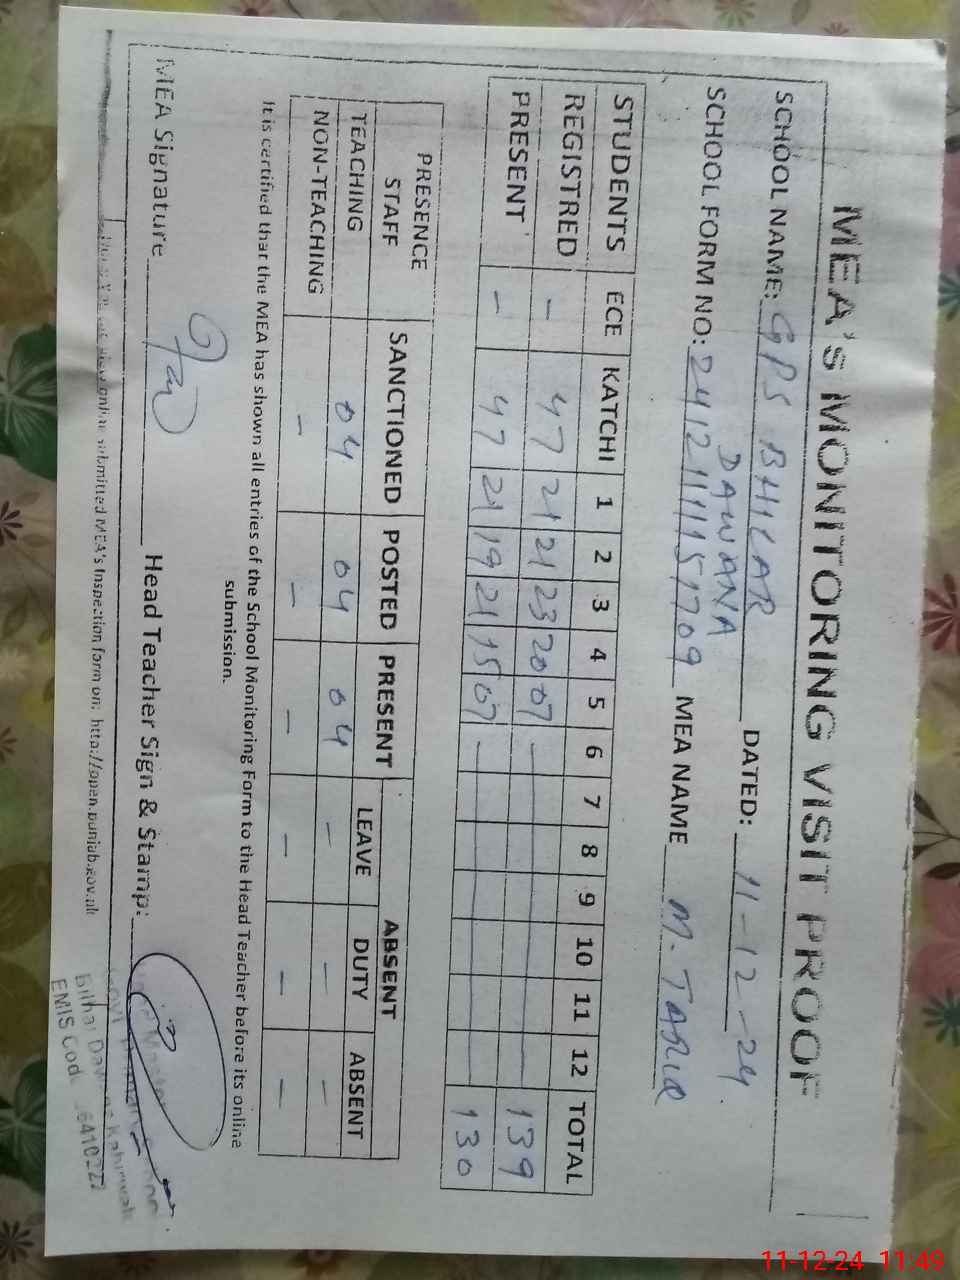 MEA'S MONITORING VISIT PROOF
SCHOOL NAME: GPS BHILAR DAWANA DATED: 11-12-24
SCHOOL FORM NO: MEA NAME M. TARIQ
STUDENTS ECE KATCHI 1 2 3 4 5 6 7 8 9 10 11 12 TOTAL
REGISTRED - 47 21 21 23 20 07 - 139
PRESENT - 47 21 19 21 15 07 - 130
PRESENCE STAFF SANCTIONED POSTED PRESENT ABSENT
LEAVE DUTY ABSENT
TEACHING 04 04 04 - - -
NON-TEACHING - - - - - -
It is certified that the MEA has shown all entries of the School Monitoring Form to the Head Teacher before its online
submission.
MEA Signature Head Teacher Sign & Stamp:
view online submitted MEA's Inspection form on: http://open.punjab.gov.pk
EMIS Code
11-12-24 11:49